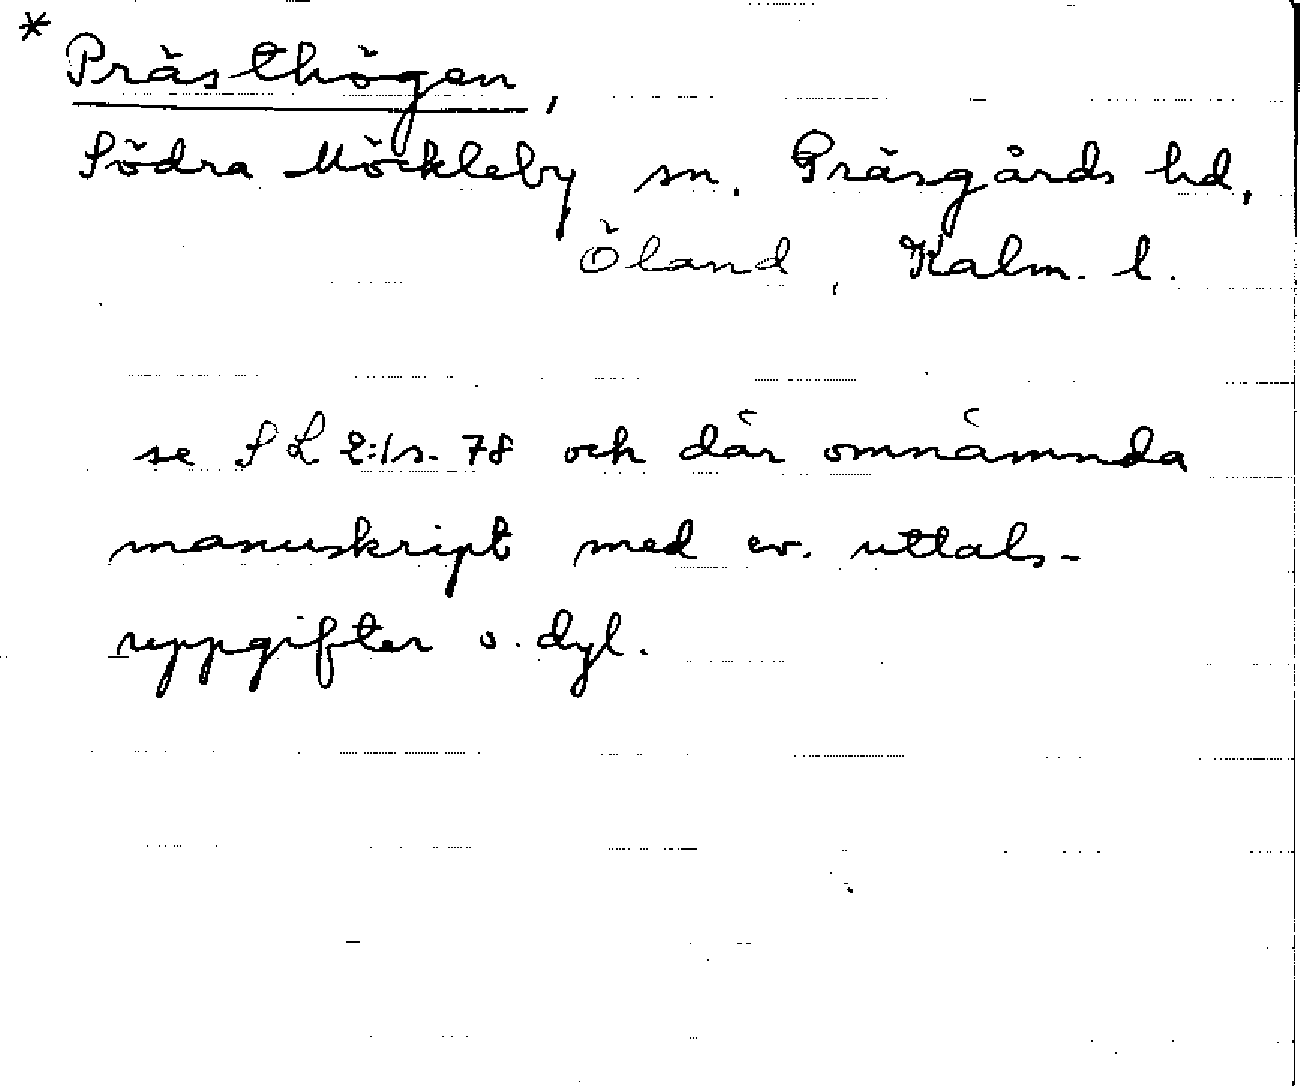 * Prästhögen,
Södra Möckleby sn. Gräsgårds hd,
Öland, Kalm. l.
se SL 2:1 s. 78 och där omnämnda
manuskript med ev. uttals-
uppgifter o. dyl.